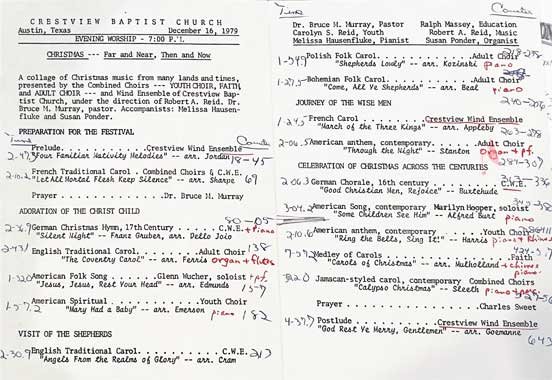 CRESTVIEW BAPTIST CHURCH
Austin, Texas December 16, 1979
EVENING WORSHIP - 7:00 P.M.
CHRISTMAS --- Far and Near, Then and Now
A collage of Christmas music from many lands and times,
presented by the Combined Choirs --- YOUTH CHOIR, FAITH,
and ADULT CHOIR --- and Wind Ensemble of Crestview Bap-
tist Church, under the direction of Robert A. Reid. Dr.
Bruce M. Murray, pastor. Accompanists: Melissa Hausen-
fluke and Susan Ponder.
Time Counter
PREPARATION FOR THE FESTIVAL
Prelude. . . . . . . . . . . . .Crestview Wind Ensemble
"Four Familiar Nativity Melodies" -- arr. Jordan 18-45
French Traditional Carol . Combined Choirs & C.W.E.
2-10.2 "Let All Mortal Flesh Keep Silence" -- arr. Sharpe 69
Prayer . . . . . . . . . . . . .Dr. Bruce M. Murray
ADORATION OF THE CHRIST CHILD
80-05
German Christmas Hymn, 17th Century . . . . C.W.E. + piano
"Silent Night" -- Franz Gruber, arr. Dello Joio
English Traditional Carol. . . . . . . .Adult Choir 138
"The Coventry Carol" -- arr. Ferris organ + flutes
American Folk Song . . . . Glenn Wucher, soloist + pf.
"Jesus, Jesus, Rest Your Head" -- arr. Edmunds
American Spiritual . . . . . . . . . . .Youth Choir
"Mary Had a Baby" -- arr. Emerson piano 182
VISIT OF THE SHEPHERDS
2-30.9 English Traditional Carol. . . . . . . . . . .C.W.E. 217
"Angels From the Realms of Glory" -- arr. Cram
Time Counter
Dr. Bruce M. Murray, Pastor Ralph Massey, Education
Carolyn S. Reid, Youth Robert A. Reid, Music
Melissa Hausenfluke, Pianist Susan Ponder, Organist
Polish Folk Carol. . . . . . . . . . . .Adult Choir
"Shepherds Lowly" -- arr. Kozinski piano
Bohemian Folk Carol. . . . . . . . . . .Adult Choir
1-27.5 "Come, All Ye Shepherds" -- arr. Beal piano
JOURNEY OF THE WISE MEN
1-24.5 French Carol . . . . . . . . Crestview Wind Ensemble
"March of the Three Kings" -- arr. Appleby
263-278
American anthem, contemporary. . . . . .Adult Choir
2-06.5 "Through the Night" -- Stanton organ + pf.
CELEBRATION OF CHRISTMAS ACROSS THE CENTURIES
2-06.3 German Chorale, 16th century . . . . . . . . C.W.E.
"Good Christian Men, Rejoice" -- Buxtehude
3-04.2 American Song, contemporary Marilyn Hooper, soloist
"Some Children See Him" -- Alfred Burt piano
2-10.6 American anthem, contemporary . . . . . . . Youth
"Ring the Bells, Sing It!" -- Harris piano +
Medley of Carols. . . . . . . . . . . . . . .Faith
"Carols of Christmas" -- arr. Mulholland + chimes
piano
Jamacan-styled carol, contemporary Combined Choirs
"Calypso Christmas" -- Sleeth piano
Prayer . . . . . . . . . . . . . . . .Charles Sweet
Postlude . . . . . . . . . .Crestview Wind Ensemble
"God Rest Ye Merry, Gentlemen" -- arr. Goemanne
643